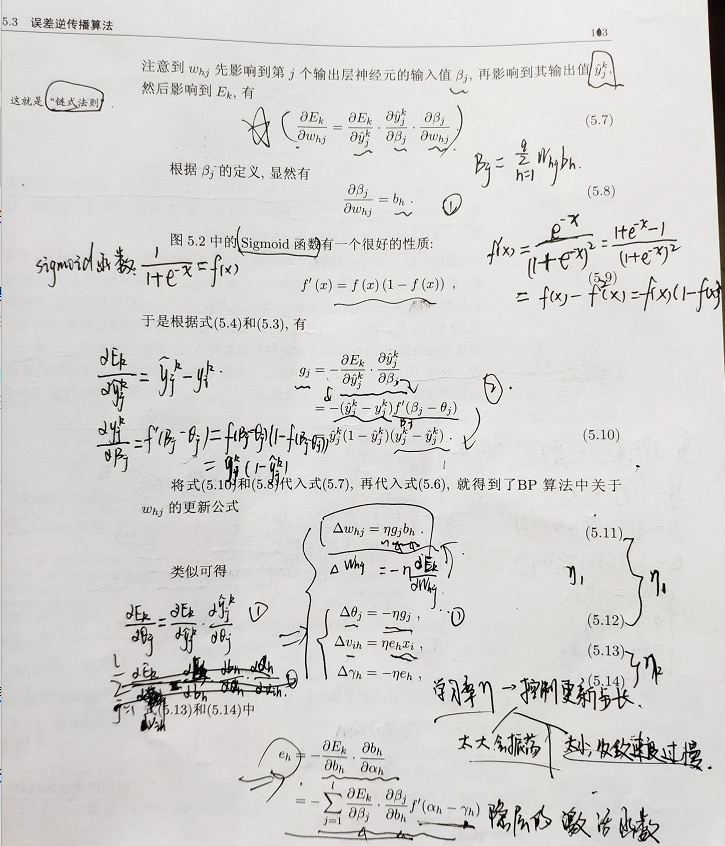 5.3 误差逆传播算法
103
注意到 w_{hj} 先影响到第 j 个输出层神经元的输入值 β_j, 再影响到其输出值 ŷ_j^k,
这就是“链式法则”
然后影响到 E_k, 有
∂E_k/∂w_{hj} = ∂E_k/∂ŷ_j^k · ∂ŷ_j^k/∂β_j · ∂β_j/∂w_{hj} . (5.7)
β_j = Σ_{h=1}^{q} w_{hj} b_h.
根据 β_j 的定义, 显然有
∂β_j/∂w_{hj} = b_h . ① (5.8)
图 5.2 中的 Sigmoid 函数有一个很好的性质:
sigmoid函数: 1/(1+e^{-x}) = f(x)
f'(x) = e^{-x}/(1+e^{-x})^2 = (1+e^{-x}-1)/(1+e^{-x})^2
f'(x) = f(x)(1 − f(x)) , (5.9)
= f(x) − f^2(x) = f(x)(1−f(x))
于是根据式(5.4)和(5.3), 有
∂E_k/∂ŷ_j^k = ŷ_j^k − y_j^k
g_j = −∂E_k/∂ŷ_j^k · ∂ŷ_j^k/∂β_j ②.
= −(ŷ_j^k − y_j^k) f'(β_j − θ_j)
∂ŷ_j^k/∂β_j = f'(β_j−θ_j) = f(β_j−θ_j)(1−f(β_j−θ_j))
ŷ_j^k(1 − ŷ_j^k)(y_j^k − ŷ_j^k) . (5.10)
= ŷ_j^k(1−ŷ_j^k)
将式(5.10)和(5.8)代入式(5.7), 再代入式(5.6), 就得到了BP 算法中关于
w_{hj} 的更新公式
Δw_{hj} = ηg_j b_h . (5.11)
Δw_{hj} = −η ∂E_k/∂w_{hj}
η_1
η_1
类似可得
∂E_k/∂θ_j = ∂E_k/∂ŷ_j^k · ∂ŷ_j^k/∂θ_j ①
Δθ_j = −ηg_j , ① (5.12)
Δv_{ih} = ηe_h x_i , (5.13)
η_2
Δγ_h = −ηe_h , (5.14)
学习率η → 控制更新步长.
(5.13)和(5.14)中
太大会振荡
太小,收敛速度过慢.
e_h = −∂E_k/∂b_h · ∂b_h/∂α_h
= −Σ_{j=1}^{l} ∂E_k/∂β_j · ∂β_j/∂b_h f'(α_h − γ_h)
隐层的激活函数